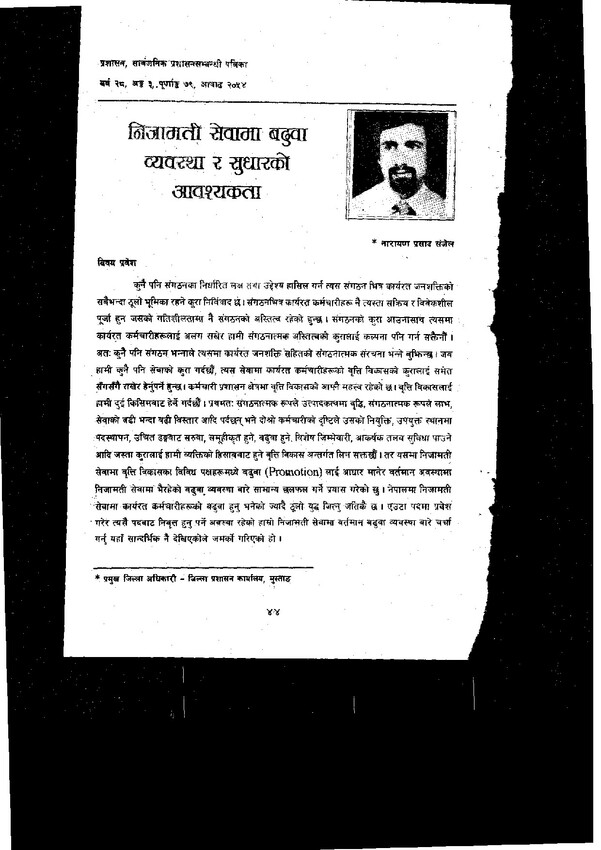 प्रशासन, सार्वजनिक प्रशासनसम्बन्धी पत्रिका
वर्ष २८, अङ्क ३, पूर्णाङ्क ७९, आषाढ २०५४
निजामती सेवामा बढुवा
व्यवस्था र सुधारको
आवश्यकता
* नारायण प्रसाद संजेल
विषय प्रवेश
कुनै पनि संगठनका निर्धारित लक्ष तथा उद्देश्य हासिल गर्न त्यस संगठन भित्र कार्यरत जनशक्तिको
सबैभन्दा ठूलो भूमिका रहने कुरा निर्विवाद छ। संगठनभित्र कार्यरत कर्मचारीहरू नै त्यस्ता सक्रिय र विवेकशील
पूंजी हुन जसको गतिशीलतामा नै संगठनको अस्तित्व रहेको हुन्छ। संगठनको कुरा आउनासाथ त्यसमा
कार्यरत कर्मचारीहरूलाई अलग राखेर हामी संगठनात्मक अस्तित्वको कुरालाई कल्पना पनि गर्न सक्तैनौं।
अतः कुनै पनि संगठन भन्नाले त्यसमा कार्यरत जनशक्ति सहितको संगठनात्मक संरचना भन्ने बुझिन्छ। जब
हामी कुनै पनि सेवाको कुरा गर्दछौं, त्यस सेवामा कार्यरत कर्मचारीहरूको वृत्ति विकासको कुरालाई समेत
सँगसँगै राखेर हेर्नुपर्ने हुन्छ। कर्मचारी प्रशासन क्षेत्रमा वृत्ति विकासको आफ्नै महत्त्व रहेको छ। वृत्ति विकासलाई
हामी दुई किसिमबाट हेर्ने गर्दछौं। प्रथमतः संगठनात्मक रूपले उत्पादकत्वमा वृद्धि, संगठनात्मक रूपले लाभ,
सेवाको बढी भन्दा बढी विस्तार आदि पर्दछन् भने दोश्रो कर्मचारीको दृष्टिले उसको नियुक्ति, उपयुक्त स्थानमा
पदस्थापन, उचित ढङ्गबाट सरुवा, समूहीकृत हुने, बढुवा हुने, विशेष जिम्मेवारी, आकर्षक तलब सुविधा पाउने
आदि जस्ता कुरालाई हामी व्यक्तिको हिसाबबाट हुने वृत्ति विकास अन्तर्गत लिन सक्तछौं। तर यसमा निजामती
सेवामा वृत्ति विकासका विविध पक्षहरूमध्ये बढुवा (Promotion) लाई आधार मानेर वर्तमान अवस्थामा
निजामती सेवामा भैरहेको बढुवा व्यवस्था बारे सामान्य छलफल गर्ने प्रयास गरेको छु। नेपालमा निजामती
सेवामा कार्यरत कर्मचारीहरूको बढुवा हुनु भनेको ज्यादै ठूलो युद्ध जित्नु जत्तिकै छ। एउटा पदमा प्रवेश
गरेर त्यसै पदबाट निवृत्त हुनु पर्ने अवस्था रहेको हाम्रो निजामती सेवामा वर्तमान बढुवा व्यवस्था बारे चर्चा
गर्नु यहाँ सान्दर्भिक नै देखिएकोले जमर्को गरिएको हो।
* प्रमुख जिल्ला अधिकारी – जिल्ला प्रशासन कार्यालय, मुस्ताङ
४४